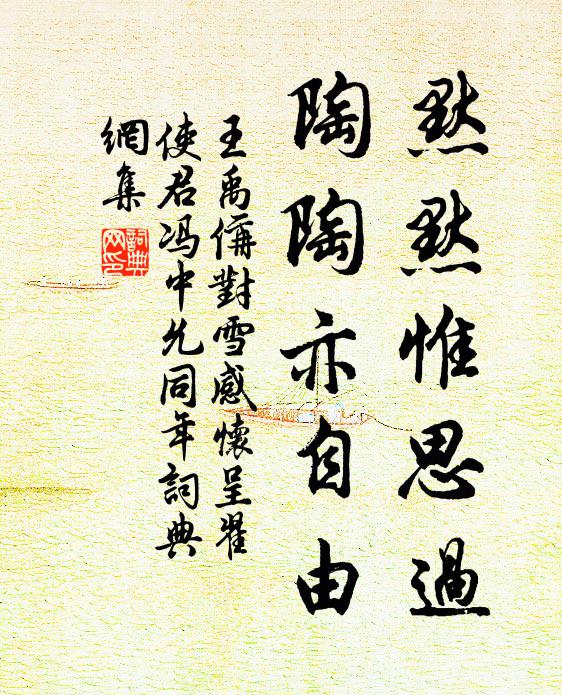 默默惟思過
陶陶亦自由
王禹偁對雪感懷呈翟
使君冯中允同年詞典
網集
詞典
网印